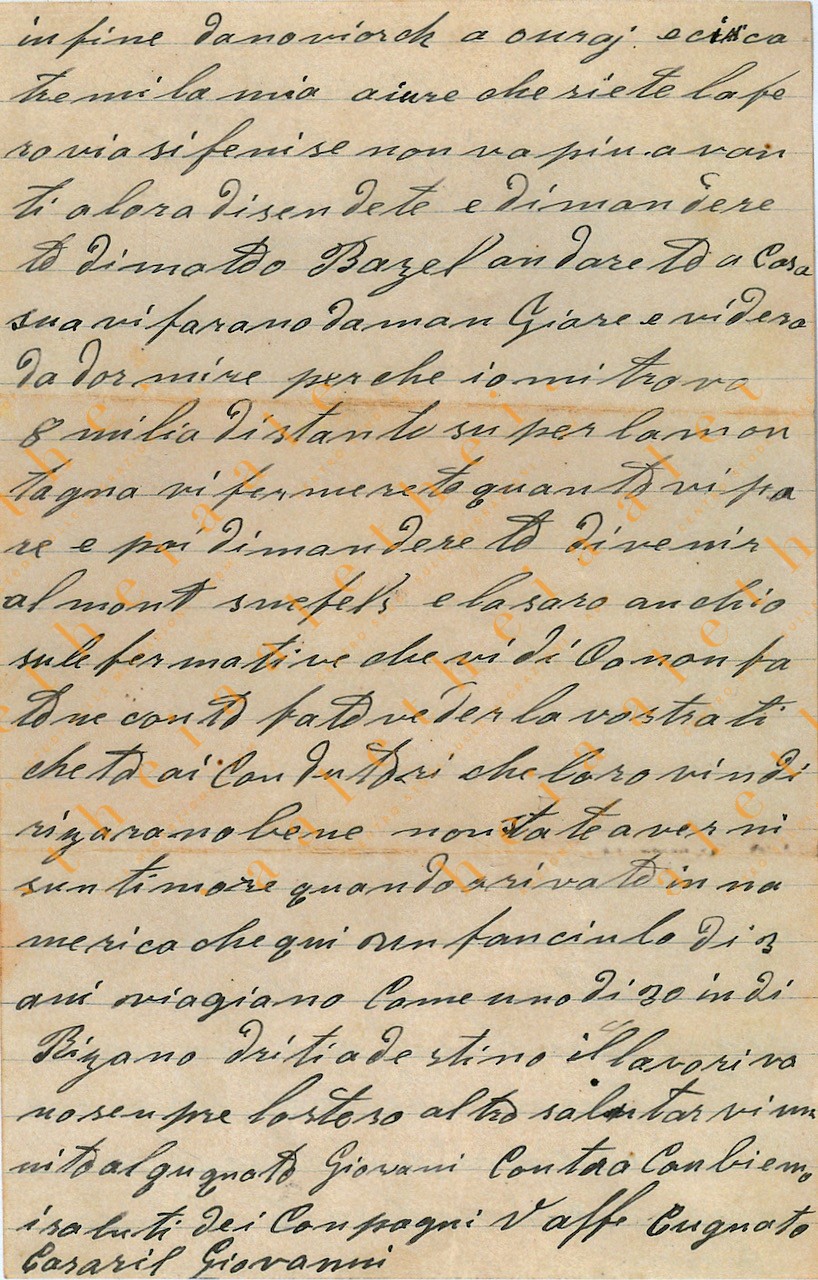 infine danoviorck a ouraj. e circa
tremila mia aiure che siete lafe
rovia si fenise non va piu avan
ti alora disendete e dimandere
to di matdo Bazel andareto a Casa
sua vi farano daman Giare e videra
da dormire perche io mi trovo
8 milia distante su per la mon
tagna vi fermereto quanto vi pa
re e poi dimandereto di venir
al mont snefels e la saro anchio
sule fermative che vi di Co non fa
tene conto fato veder la vostra ti
cheto ai Condutori che loro vindi
rizarano bene non state aver ni
sun timore quando arivato in na
merica che qui un fanciulo di 3
ani viagiano Come uno di 30 in di
Rizano driti a destino il lavoriva
no senpre lostoso altro salutarvi un
nito al guquato Giovani Contra Conbiemo
i saluti dei Conpagni V affe Cugnato
Casaril Giovanni